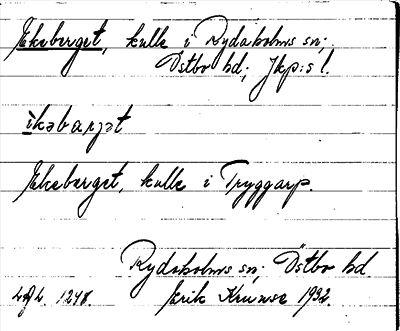 Ekeberget, kulle i Rydaholms sn;
Östbo hd; Jkp:s l.
ìkəbarjət
Ekeberget, kulle i Tryggarp.
Rydaholms sn; Östbo hd
1248. Erik Krunse 1932.